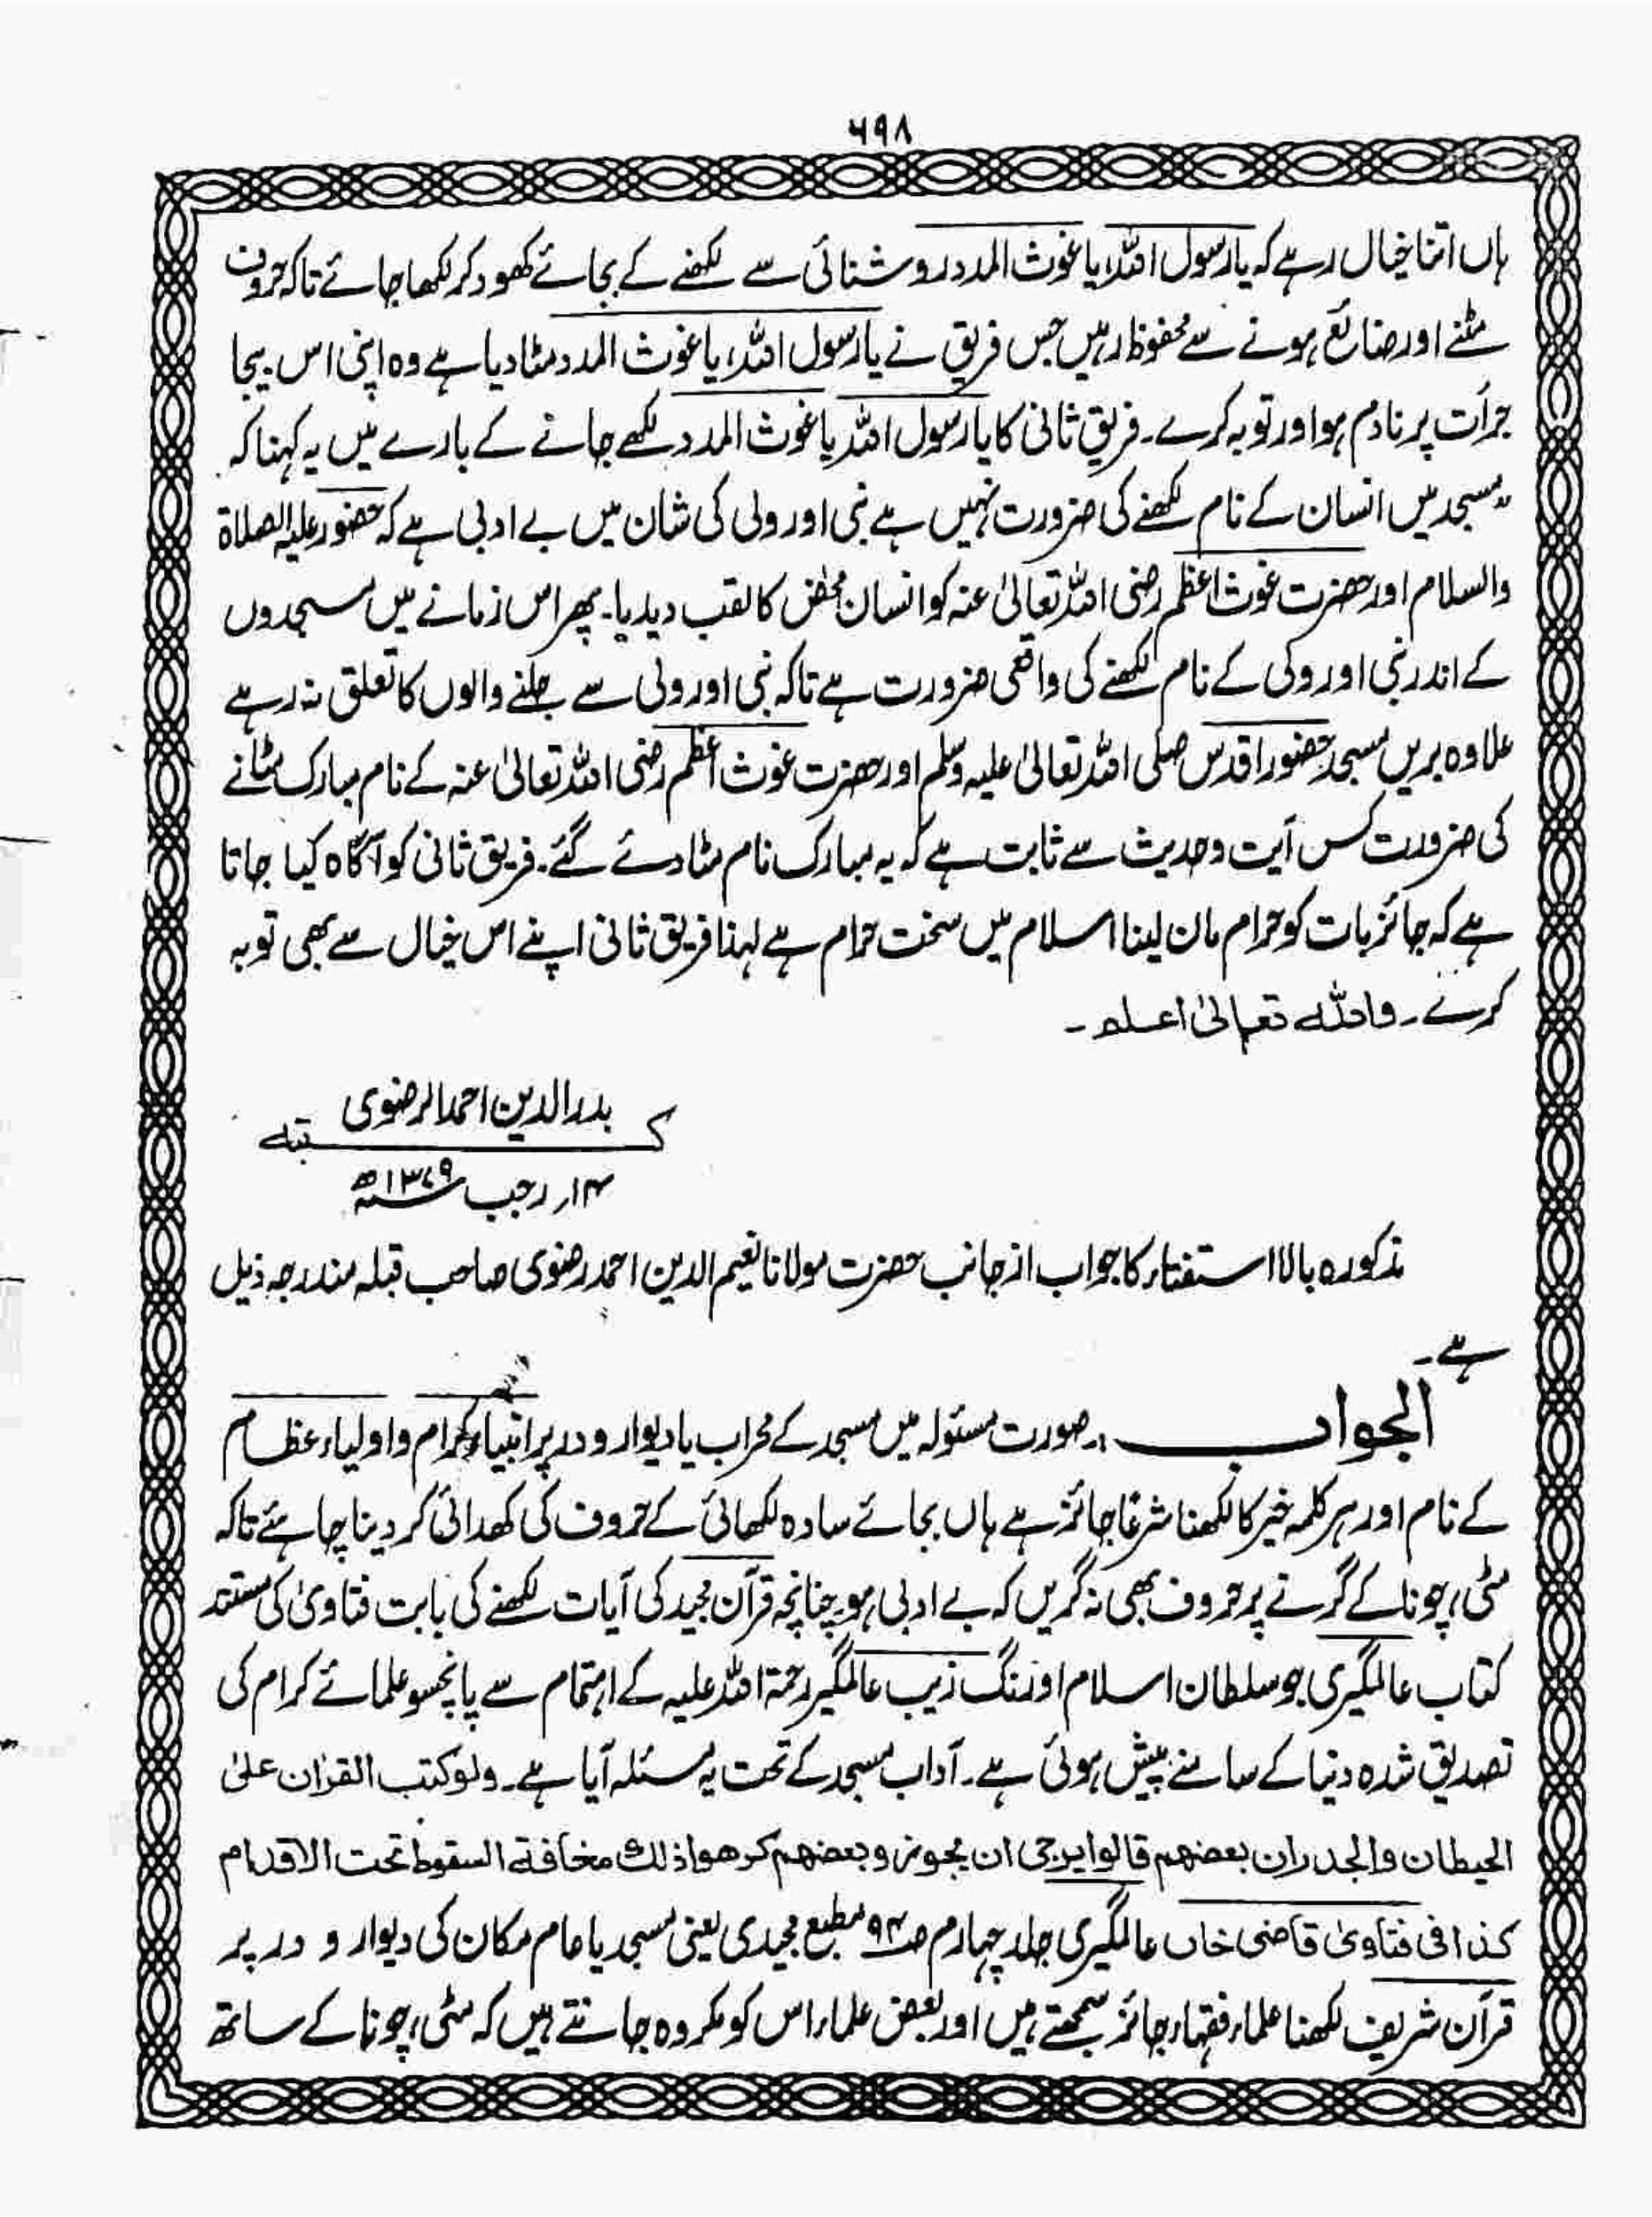 ۶۹۸
ہاں اتنا خیال رہے کہ یا رسول اللہ، یا غوث المدد روشنائی سے لکھنے کے بجائے کھود کر لکھا جائے تاکہ حروف
مٹنے اور ضائع ہونے سے محفوظ رہیں جس فریق نے یا رسول اللہ، یا غوث المدد مٹا دیا ہے وہ اپنی اس بیجا
جرأت پر نادم ہو اور توبہ کرے۔ فریق ثانی کا یا رسول اللہ یا غوث المدد لکھے جانے کے بارے میں یہ کہنا کہ
”مسجد میں انسان کے نام لکھنے کی ضرورت نہیں ہے نبی اور ولی کی شان میں بے ادبی ہے کہ حضور علیہ الصلاۃ
والسلام اور حضرت غوث اعظم رضی اللہ تعالیٰ عنہ کو انسان محض کا لقب دیدیا۔ پھر اس زمانے میں مسجدوں
کے اندر نبی اور ولی کے نام لکھنے کی واقعی ضرورت ہے تاکہ نبی اور ولی سے جلنے والوں کا تعلق نہ رہے
علاوہ بریں مسجد حضور اقدس صلی اللہ تعالیٰ علیہ وسلم اور حضرت غوث اعظم رضی اللہ تعالیٰ عنہ کے نام مبارک مٹانے
کی ضرورت کس آیت و حدیث سے ثابت ہے کہ یہ مبارک نام مٹا دئے گئے۔ فریق ثانی کو آگاہ کیا جاتا
ہے کہ جائز بات کو حرام مان لینا اسلام میں سخت حرام ہے لہٰذا فریق ثانی اپنے اس خیال سے بھی توبہ
کرے۔ واللہ تعالیٰ اعلم۔
بدر الدین احمد الرضوی
کتبہ
۱۴؍ رجب ۱۳۷۹ھ
مذکورہ بالا استفتاء کا جواب از جانب حضرت مولانا نعیم الدین احمد رضوی صاحب قبلہ مندرجہ ذیل
ہے۔
الجواب :۔ صورت مسئولہ میں مسجد کے محراب یا دیوار و در پر انبیاء کرام و اولیاء عظام
کے نام اور ہر کلمہ خیر کا لکھنا شرعًا جائز ہے ہاں بجائے سادہ لکھائی کے حروف کی کھدائی کر دینا چاہئے تاکہ
مٹی، چونا کے گرنے پر حروف بھی نہ گریں کہ بے ادبی ہو چنانچہ قرآن مجید کی آیات لکھنے کی بابت فتاویٰ کی مستند
کتاب عالمگیری جو سلطان اسلام اورنگ زیب عالمگیر رحمۃ اللہ علیہ کے اہتمام سے پانچسو علمائے کرام کی
تصدیق شدہ دنیا کے سامنے پیش ہوئی ہے۔ آداب مسجد کے تحت یہ مسئلہ آیا ہے۔ ولو کتب القرآن علیٰ
الحیطان والجدران بعضھم قالوا یرجی ان یجوز و بعضھم کرھوا ذلک مخافۃ السقوط تحت الاقدام
کذا فی فتاویٰ قاضی خاں عالمگیری جلد چہارم ص۹۴ مطبع مجیدی یعنی مسجد یا عام مکان کی دیوار و در پر
قرآن شریف لکھنا علماء فقہاء جائز سمجھتے ہیں اور بعض علماء اس کو مکروہ جانتے ہیں کہ مٹی، چونا کے ساتھ